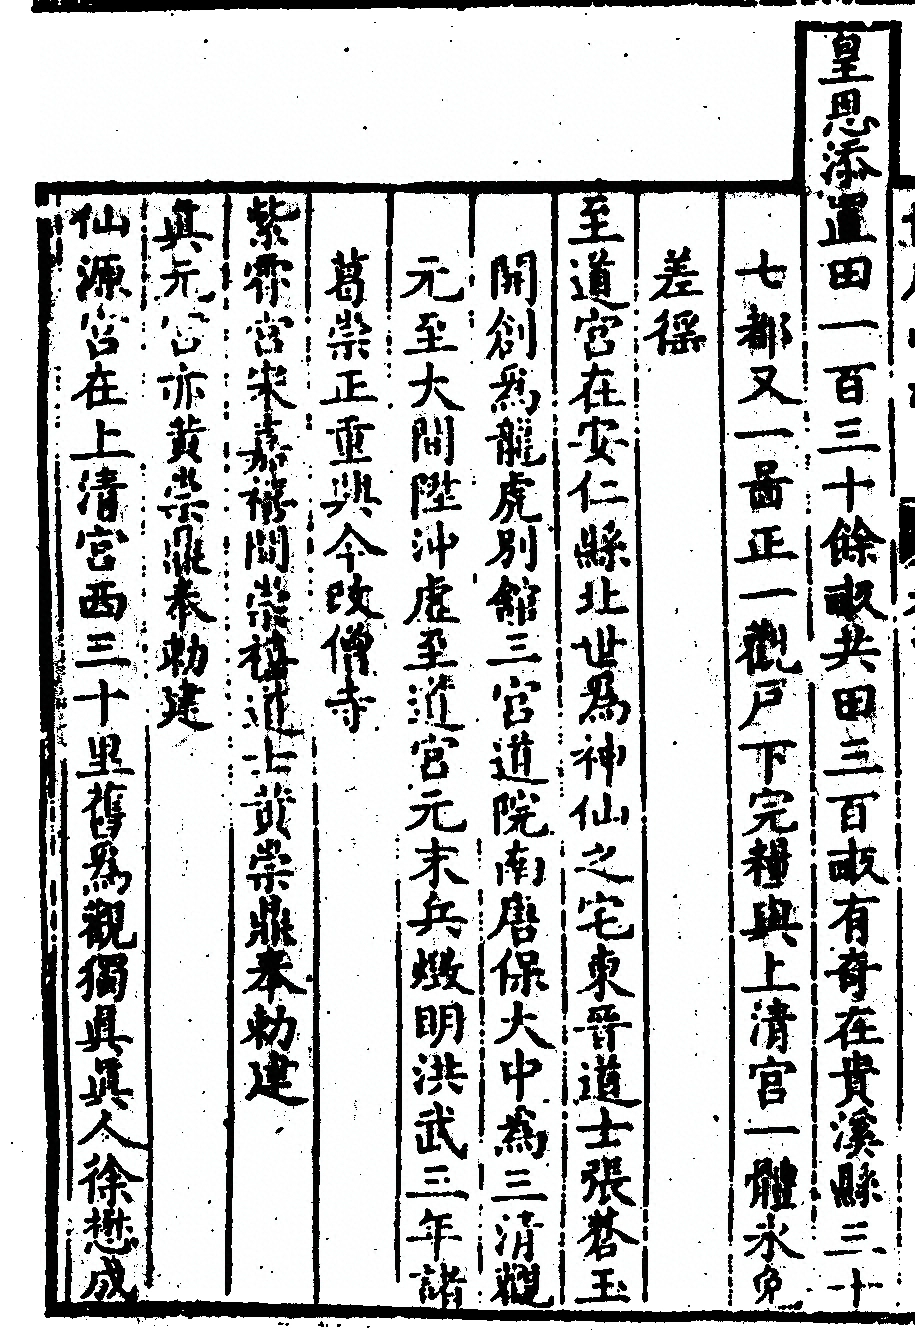 皇恩添置田一百三十餘畝共田三百畝有奇在貴溪縣三十
七都又一啚正一觀戸下完糧與上清宮一體永免
差徭
至道宮在安仁縣北世為神仙之宅東晉道士張茗玉
開創為龍虎別館三官道院南唐保大中為三清觀
元至大間陞沖虛至道宮元末兵燬明洪武三年諸
葛崇正重興今改僧寺
紫霄宮宋嘉禧間崇禧道士黃崇鼎奉勅建
真元宮亦黃崇鼎奉勅建
仙源宮在上清宮西三十里舊為觀獨真真人徐懋成